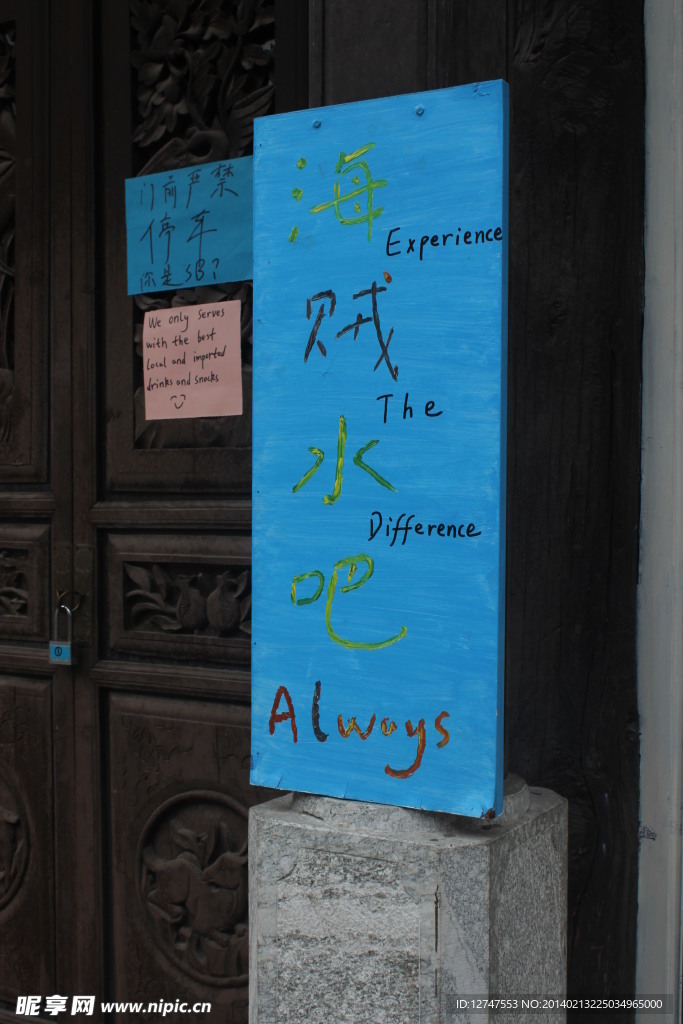 门前严禁
停车
你是SB?
We only serves
with the best
local and imported
drinks and snacks
海
Experience
贼
The
水
Difference
吧
Always
昵享网 www.nipic.cn
ID:12747553 NO:20140213225034965000